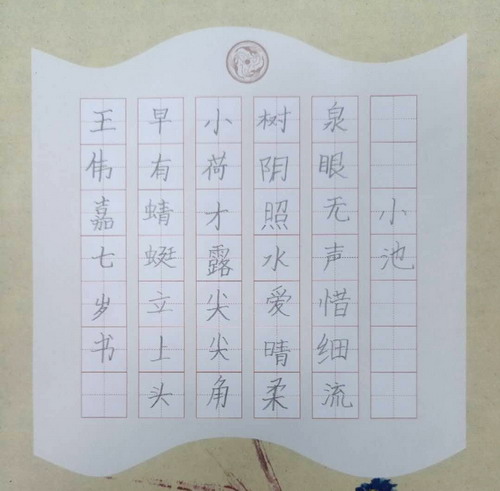 小池
泉眼无声惜细流
树阴照水爱晴柔
小荷才露尖尖角
早有蜻蜓立上头
王伟嘉七岁书